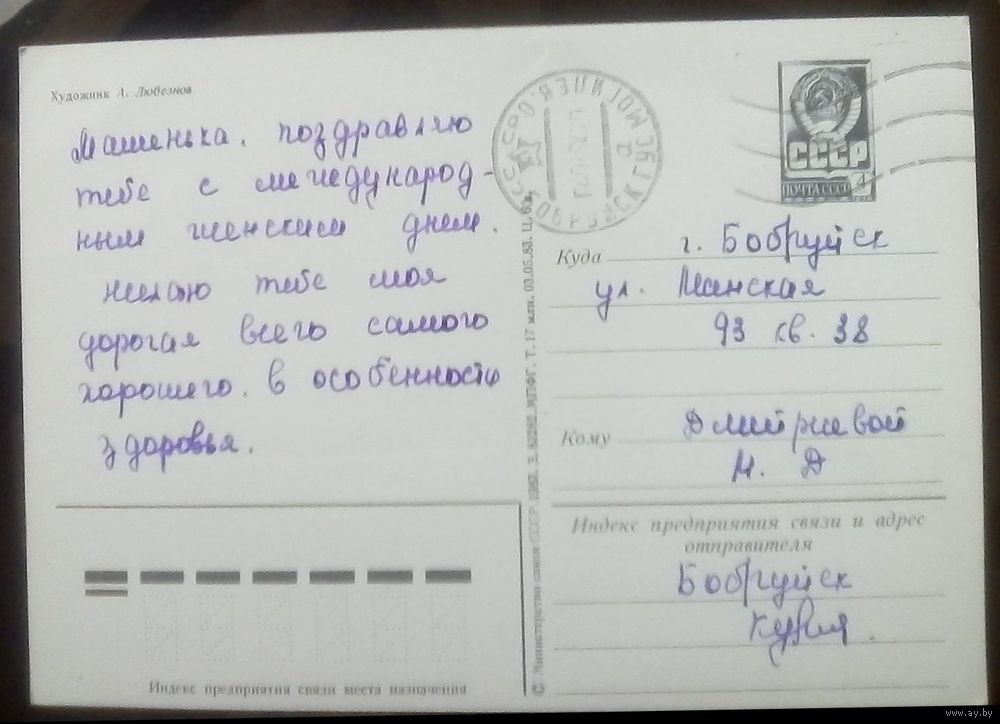 Художник А. Любезнов
Машенька. поздравляю
тебе с международ-
ным женским днем.
желаю тебе моя
дорогая всего самого
хорошего. в особенности
здоровья.
СССР
ПОЧТА СССР 4
Куда г. Бобруйск
ул. Минская
93 кв. 38
Кому Дмитриевой
М. Д
Индекс предприятия связи и адрес
отправителя
Бобруйск
Индекс предприятия связи места назначения
© Министерство связи СССР. 1983. З. МПФГ. Т. 17 млн. 03.05.83. Ц. 6 к.
www.ay.by